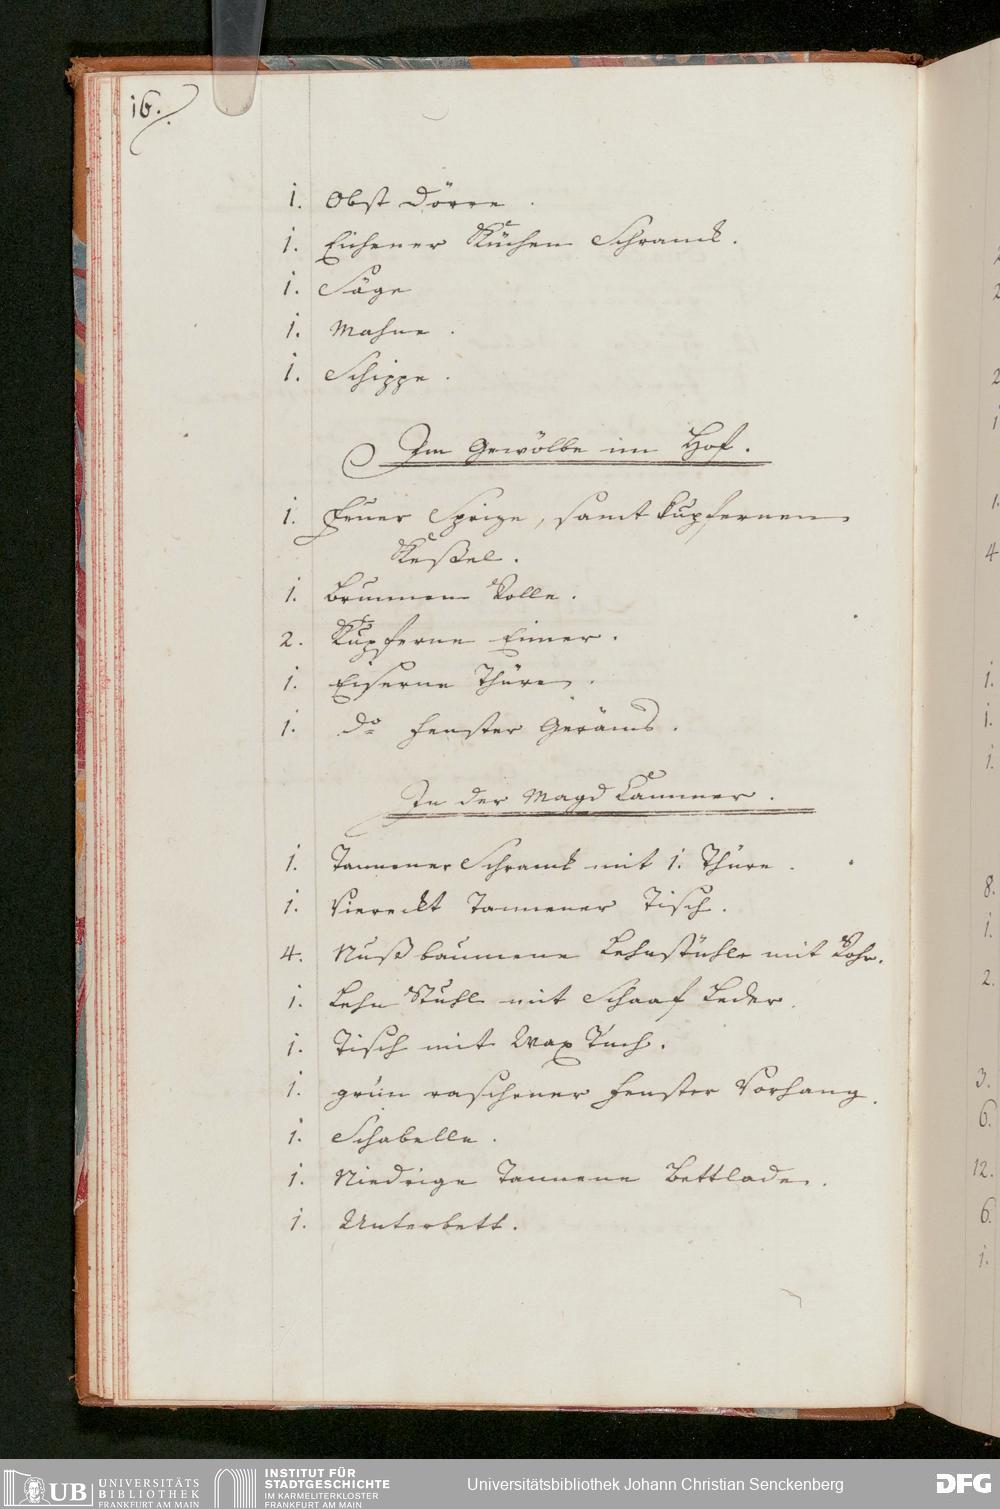 16.
1. Obst Dörre.
1. Eichener Küchen Schranck.
1. Säge
1. Mahne.
1. Schippe.
Im Gewölbe im Hof.
1. Feuer Sprize, samt kupfernen
Keßel.
1. Brunnen Rolle.
2. Kupferne Eimer.
1. Eiserne Thüre.
1. do Fenster Gerämbs.
In der Magd Cammer.
1. Tannener Schranck mit 1. Thüre.
1. Viereckt Tannener Tisch.
4. Nußbaumene Lehnstühle mit Rohr.
1. Lehn Stuhl mit Schaaf Leder.
1. Tisch mit Wax Tuch.
1. grün raschener Fenster Vorhang.
1. Schabelle.
1. Niedrige Tannene Bettlade.
1. Unterbett.
2
2
1
1.
4
1.
1.
1.
8.
1.
2.
3.
6.
12.
6.
1.
UB UNIVERSITÄTS
BIBLIOTHEK
FRANKFURT AM MAIN
INSTITUT FÜR
STADTGESCHICHTE
IM KARMELITERKLOSTER
FRANKFURT AM MAIN
Universitätsbibliothek Johann Christian Senckenberg
DFG